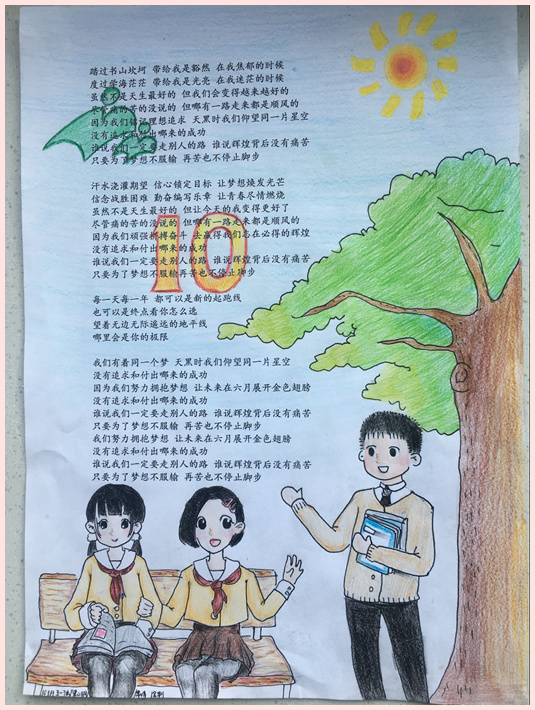 踏过书山坎坷 带给我是豁然 在我焦郁的时候
度过学海茫茫 带给我是光亮 在我迷茫的时候
虽然不是天生最好的 但我们会变得越来越好的
尽管痛的苦的没说的 但哪有一路走来都是顺风的
因为我们铭记理想追求 天黑时我们仰望同一片星空
没有追求和付出哪来的成功
谁说我们一定要走别人的路 谁说辉煌背后没有痛苦
只要为了梦想不服输 再苦也不停止脚步
汗水浇灌期望 信心锁定目标 让梦想焕发光芒
信念战胜困难 勤奋编写乐章 让青春尽情燃烧
虽然不是天生最好的 但让今天的我变得更好了
尽管痛的苦的没说的 但哪有一路走来都是顺风的
因为我们顽强拼搏奋斗 去赢得我们志在必得的辉煌
没有追求和付出哪来的成功
谁说我们一定要走别人的路 谁说辉煌背后没有痛苦
只要为了梦想不服输再苦也不停止脚步
10
每一天每一年 都可以是新的起跑线
也可以是终点看你怎么选
望着无边无际遥远的地平线
哪里会是你的极限
我们有着同一个梦 天黑时我们仰望同一片星空
没有追求和付出哪来的成功
因为我们努力拥抱梦想 让未来在六月展开金色翅膀
没有追求和付出哪来的成功
谁说我们一定要走别人的路 谁说辉煌背后没有痛苦
只要为了梦想不服输 再苦也不停止脚步
我们努力拥抱梦想 让未来在六月展开金色翅膀
没有追求和付出哪来的成功
谁说我们一定要走别人的路 谁说辉煌背后没有痛苦
只要为了梦想不服输 再苦也不停止脚步